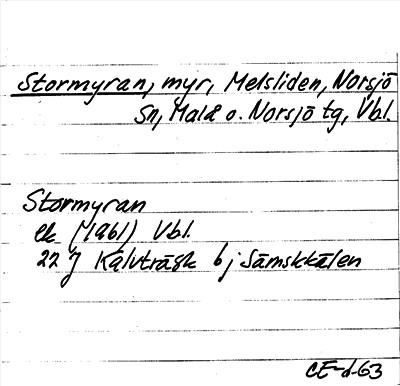 Stormyran, myr, Melsliden, Norsjö
Sn, Malå o. Norsjö tg, Vbl.
Stormyran
ek (1961) Vbl.
22 J Kalvträsk 6 j Sämskkälen
CE-d-63